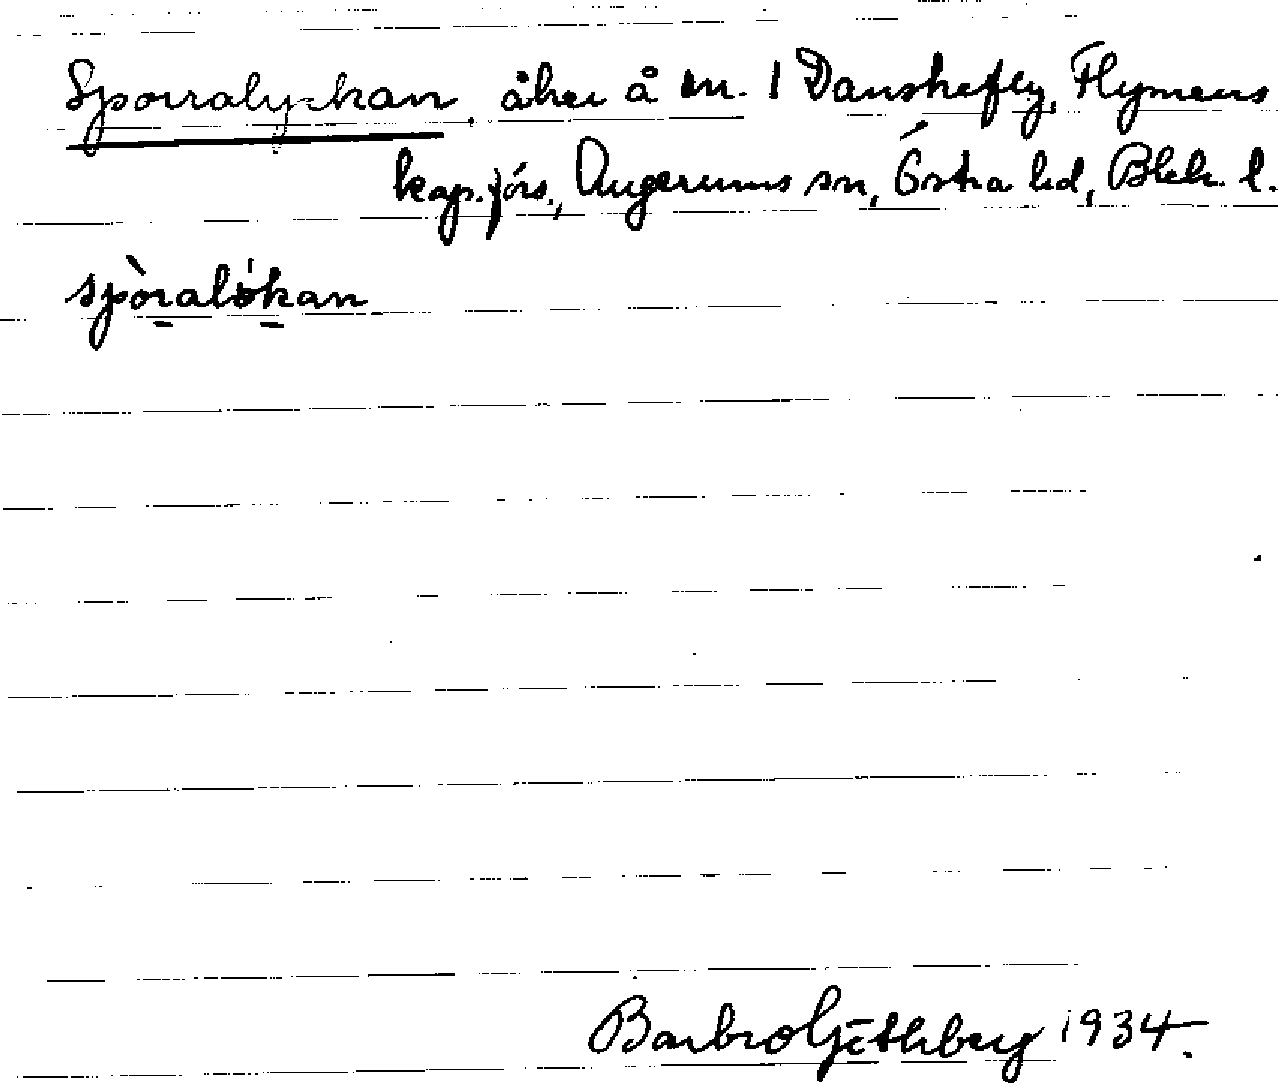 Sporralyckan, åker å nr. 1 Danskefly, Flymens
kap.förs., Augerums sn, Östra hd, Blek. l.
spòralókan
Barbro Göthberg 1934.